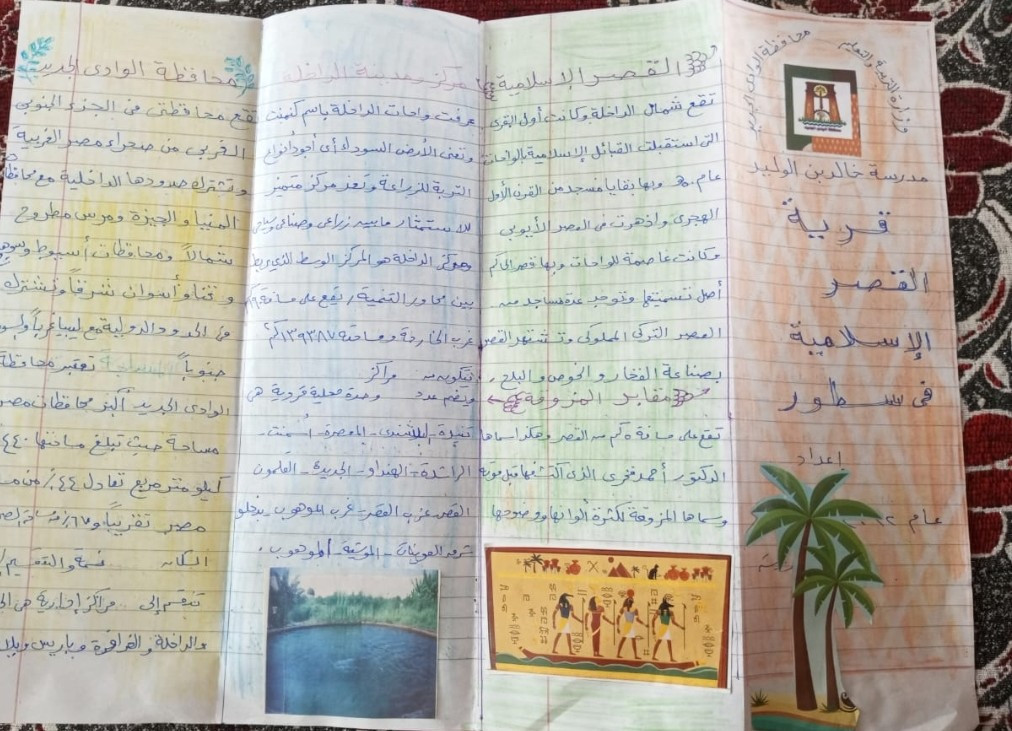 محافظة الوادى الجديد
وزارة التربية والتعليم
مدرسة خالد بن الوليد
قرية
القصر
الإسلامية
فى سطور
إعداد
عام
القصر الإسلامية
تقع شمال الداخلة وكانت أول القرى
التى استقبلت القبائل الإسلامية بالواحات
عام ٥٠هـ وبها بقايا مسجد من القرن الأول
الهجرى وازدهرت فى العصر الأيوبى
وكانت عاصمة للواحات وبها قصر الحاكم
أصل تسميتها وتوجد عدة مساجد من
العصر التركى المملوكى وتشتهر القصر
بصناعة الفخار والخوص والبلح
مقابر المزوقة
تقع على مسافة ٥كم من القصر وهكذا اسماها
الدكتور أحمد فخرى الذى اكتشفها قبل موته
وسماها المزوقة لكثرة ألوانها ووضوحها
مركز مدينة الداخلة
عرفت واحات الداخلة باسم كنمت
وتعنى الأرض السوداء أى أجود أنواع
التربة للزراعة وتعد مركز متميز
للاستثمار مابين زراعى وصناعى
ومركز الداخلة هو المركز الوسط الذى يربط
بين محاور التنمية يقع على مسافة
غرب الخارجة ومساحته ١٣٩٣٨٧كم
يتكون من مراكز
ويضم عدد وحدة محلية قروية هى
تنيدة - بلاط - المعصرة - أسمنت -
الراشدة - الهنداو - الجديدة - القلمون
القصر - غرب القصر - غرب الموهوب -
شرق العوينات - الموشية - الموهوب .
محافظة الوادى الجديد
تقع محافظتى فى الجزء الجنوبى
الغربى من صحراء مصر الغربية
وتشترك حدودها الداخلية مع
المنيا والجيزة ومرسى مطروح
شمالاً ومحافظات أسيوط
وقنا وأسوان شرقاً وتشترك
فى الحدود الدولية مع ليبيا غرباً
جنوباً تعتبر محافظة
الوادى الجديد أكبر محافظات مصر
مساحة حيث تبلغ مساحتها
كيلو متر مربع تعادل ٤٤٪ من
مصر تقريباً و٦٧٪ من
السكان نسمة والتقسيم
تنقسم إلى مراكز إدارية هى
والداخلة والفرافرة وباريس وبلاط